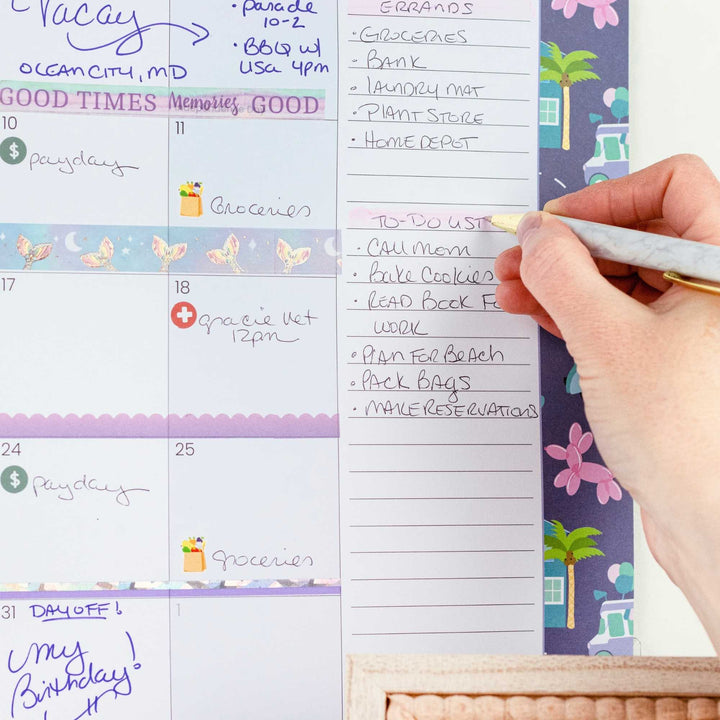 Vacay
OCEAN CITY, MD
• parade
10-2
• BBQ w/
Lisa 4pm
GOOD TIMES Memories GOOD
10
$ payday
11
Groceries
17
18
gracie vet
12pm
24
$ payday
25
groceries
31 DAY OFF!
my
Birthday!
1
ERRANDS
• GROCERIES
• BANK
• LAUNDRY MAT
• PLANT STORE
• HOME DEPOT
TO-DO LIST
• CALL MOM
• Bake Cookies
• READ BOOK FO
WORK
• PLAN FOR BEACH
• PACK BAGS
• MAKE RESERVATIONS